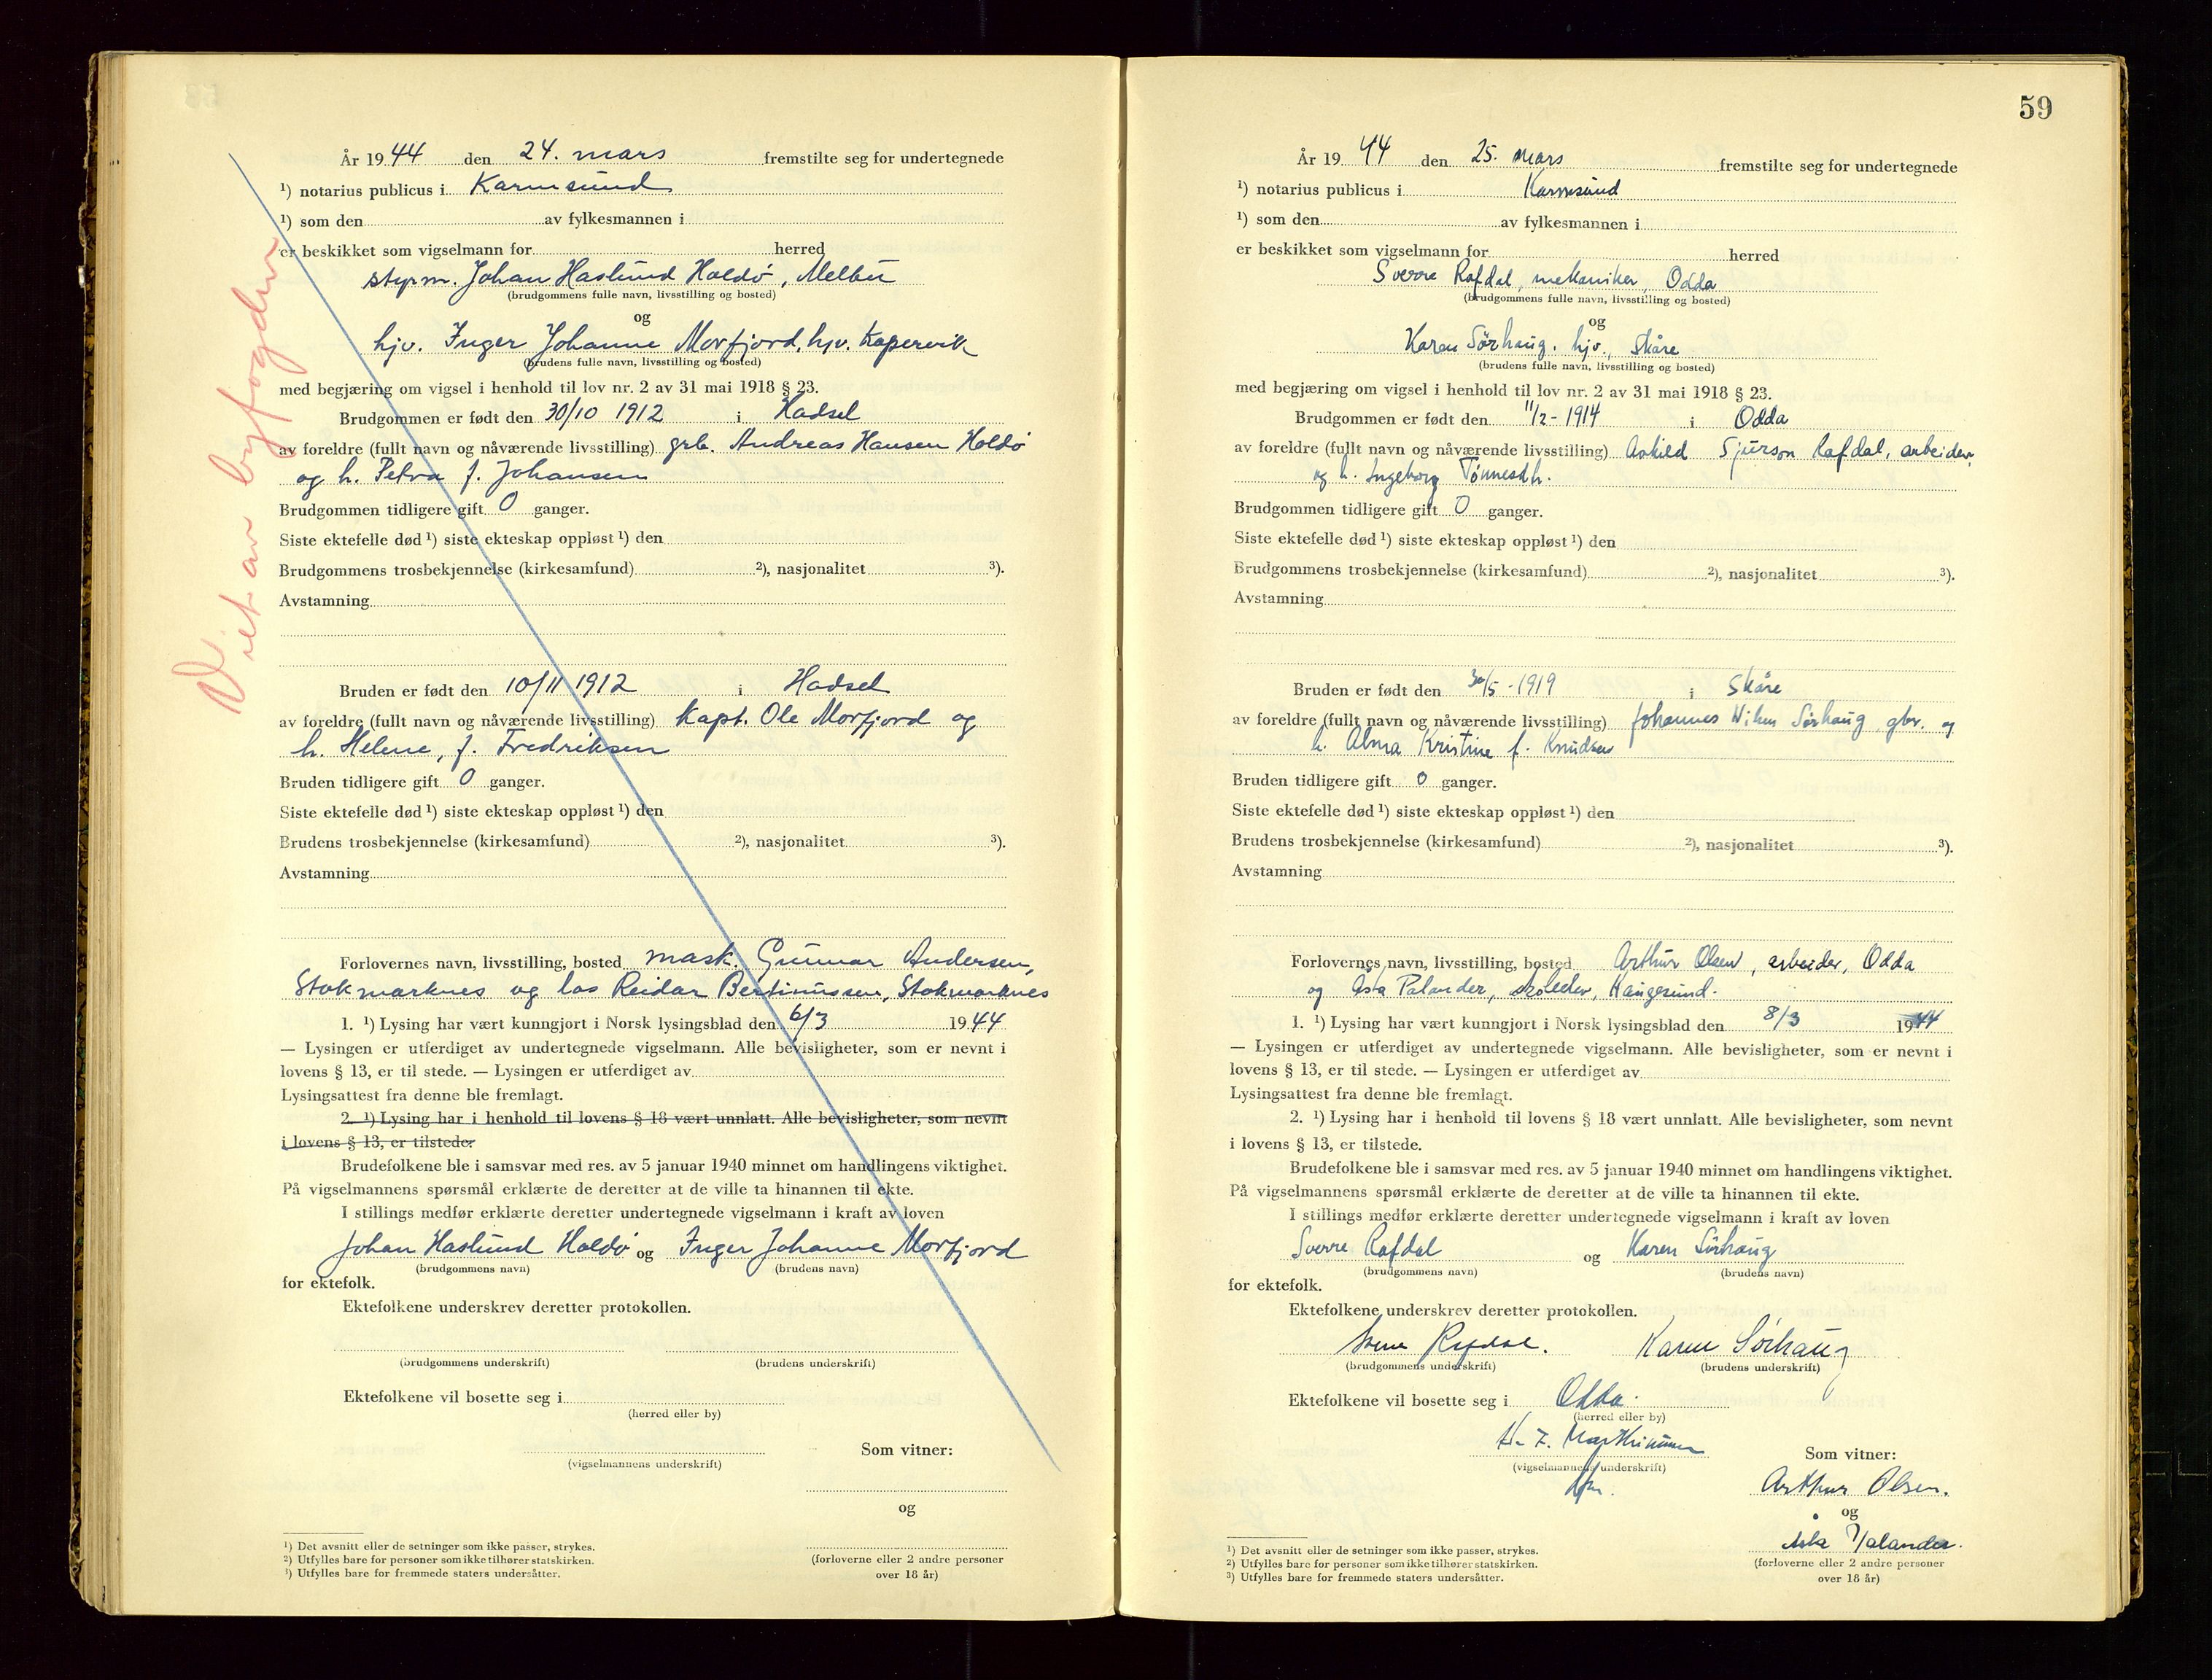 År 1944 den 24. mars fremstilte seg for undertegnede
¹) notarius publicus i Karmsund
¹) som den av fylkesmannen i
er beskikket som vigselmann for herred
styrm. Johan Haslund Holdø, Melbu
(brudgommens fulle navn, livsstilling og bosted)
og
hjv. Inger Johanne Morfjord, hjv. Kopervik
(brudens fulle navn, livsstilling og bosted)
med begjæring om vigsel i henhold til lov nr. 2 av 31 mai 1918 § 23.
Brudgommen er født den 30/10 1912 i Hadsel
av foreldre (fullt navn og nåværende livsstilling) grb. Andreas Hansen Holdø
og h. Petra f. Johansen
Brudgommen tidligere gift 0 ganger.
Siste ektefelle død ¹) siste ekteskap oppløst ¹) den
Brudgommens trosbekjennelse (kirkesamfund) ²), nasjonalitet ³).
Avstamning
Bruden er født den 10/11 1912 i Hadsel
av foreldre (fullt navn og nåværende livsstilling) Kapt. Ole Morfjord og
h. Helene, f. Fredriksen
Bruden tidligere gift 0 ganger.
Siste ektefelle død ¹) siste ekteskap oppløst ¹) den
Brudens trosbekjennelse (kirkesamfund) ²), nasjonalitet ³).
Avstamning
Forlovernes navn, livsstilling, bosted mask. Gunnar Andersen,
Stokmarknes og los Reidar Bertinussen, Stokmarknes
1. ¹) Lysing har vært kunngjort i Norsk lysingsblad den 6/3 1944
— Lysingen er utferdiget av undertegnede vigselmann. Alle bevisligheter, som er nevnt i
lovens § 13, er til stede. — Lysingen er utferdiget av
Lysingsattest fra denne ble fremlagt.
2. ¹) Lysing har i henhold til lovens § 18 vært unnlatt. Alle bevisligheter, som nevnt
i lovens § 13, er tilstede.
Brudefolkene ble i samsvar med res. av 5 januar 1940 minnet om handlingens viktighet.
På vigselmannens spørsmål erklærte de deretter at de ville ta hinannen til ekte.
I stillings medfør erklærte deretter undertegnede vigselmann i kraft av loven
Johan Haslund Holdø og Inger Johanne Morfjord
(brudgommens navn) (brudens navn)
for ektefolk.
Ektefolkene underskrev deretter protokollen.
(brudgommens underskrift) (brudens underskrift)
Ektefolkene vil bosette seg i
(herred eller by)
Som vitner:
(vigselmannens underskrift)
og
(forloverne eller 2 andre personer
over 18 år)
¹) Det avsnitt eller de setninger som ikke passer, strykes.
²) Utfylles bare for personer som ikke tilhører statskirken.
³) Utfylles bare for fremmede staters undersåtter.
Viet av byfogden
59
År 1944 den 25. mars fremstilte seg for undertegnede
¹) notarius publicus i Karmsund
¹) som den av fylkesmannen i
er beskikket som vigselmann for herred
Sverre Rafdal, mekaniker, Odda
(brudgommens fulle navn, livsstilling og bosted)
og
Karen Sørhaug. hjv., Skåre
(brudens fulle navn, livsstilling og bosted)
med begjæring om vigsel i henhold til lov nr. 2 av 31 mai 1918 § 23.
Brudgommen er født den 11/2 - 1914 i Odda
av foreldre (fullt navn og nåværende livsstilling) Askild Sjurson Rafdal, arbeider,
og h. Ingeborg Tønnesdh.
Brudgommen tidligere gift 0 ganger.
Siste ektefelle død ¹) siste ekteskap oppløst ¹) den
Brudgommens trosbekjennelse (kirkesamfund) ²), nasjonalitet ³).
Avstamning
Bruden er født den 30/5 - 1919 i Skåre
av foreldre (fullt navn og nåværende livsstilling) Johannes Wiken Sørhaug, gbr. og
h. Alma Kristine f. Knudsen
Bruden tidligere gift 0 ganger.
Siste ektefelle død ¹) siste ekteskap oppløst ¹) den
Brudens trosbekjennelse (kirkesamfund) ²), nasjonalitet ³).
Avstamning
Forlovernes navn, livsstilling, bosted Arthur Olsen, arbeider, Odda
og Åsta Palander, Haugesund.
1. ¹) Lysing har vært kunngjort i Norsk lysingsblad den 8/3 1944
— Lysingen er utferdiget av undertegnede vigselmann. Alle bevisligheter, som er nevnt i
lovens § 13, er til stede. — Lysingen er utferdiget av
Lysingsattest fra denne ble fremlagt.
2. ¹) Lysing har i henhold til lovens § 18 vært unnlatt. Alle bevisligheter, som nevnt
i lovens § 13, er tilstede.
Brudefolkene ble i samsvar med res. av 5 januar 1940 minnet om handlingens viktighet.
På vigselmannens spørsmål erklærte de deretter at de ville ta hinannen til ekte.
I stillings medfør erklærte deretter undertegnede vigselmann i kraft av loven
Sverre Rafdal og Karen Sørhaug
(brudgommens navn) (brudens navn)
for ektefolk.
Ektefolkene underskrev deretter protokollen.
Sverre Rafdal. Karen Sørhaug
(brudgommens underskrift) (brudens underskrift)
Ektefolkene vil bosette seg i Odda.
(herred eller by)
Som vitner:
(vigselmannens underskrift)
Arthur Olsen.
og
Palander.
(forloverne eller 2 andre personer
over 18 år)
¹) Det avsnitt eller de setninger som ikke passer, strykes.
²) Utfylles bare for personer som ikke tilhører statskirken.
³) Utfylles bare for fremmede staters undersåtter.